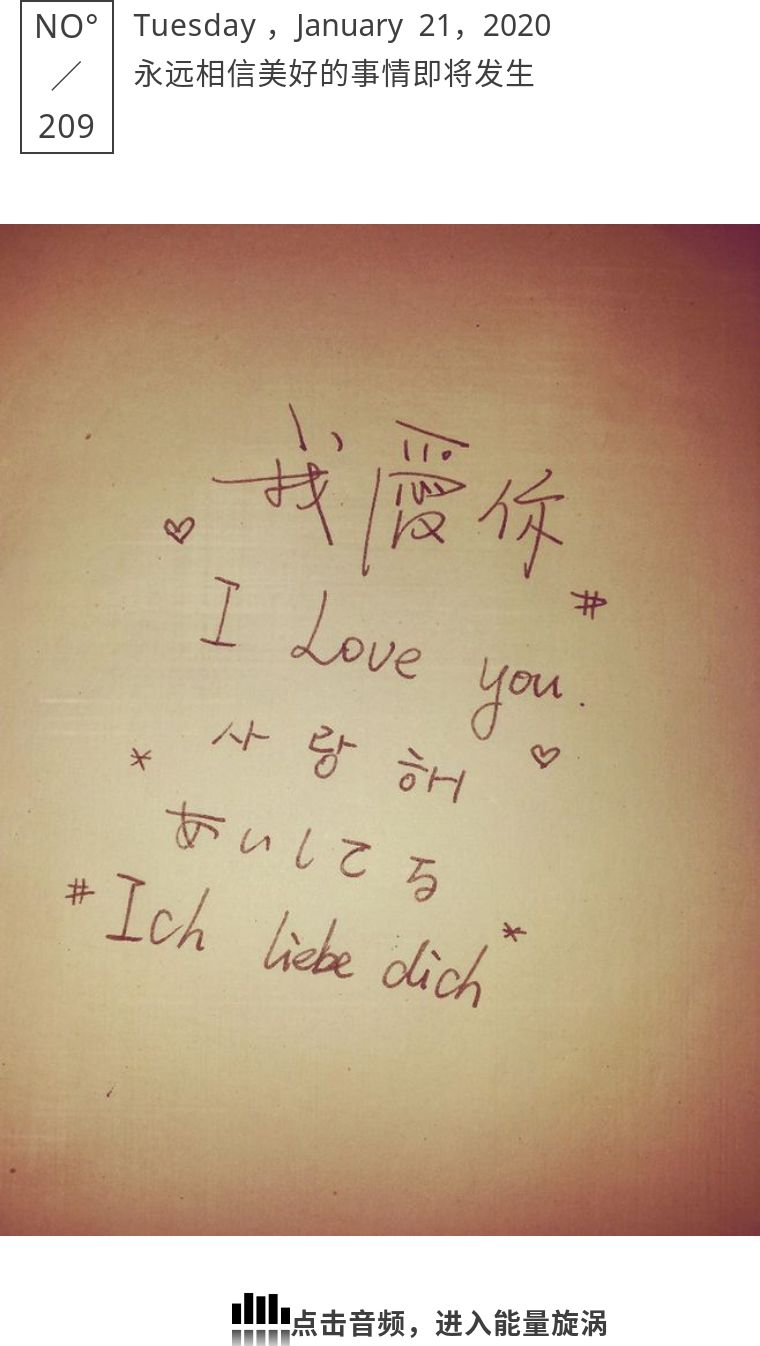 NO°
／
209
Tuesday ，January 21，2020
永远相信美好的事情即将发生
我愛你
I Love you.
사랑해
あいしてる
# Ich liebe dich *
点击音频，进入能量旋涡